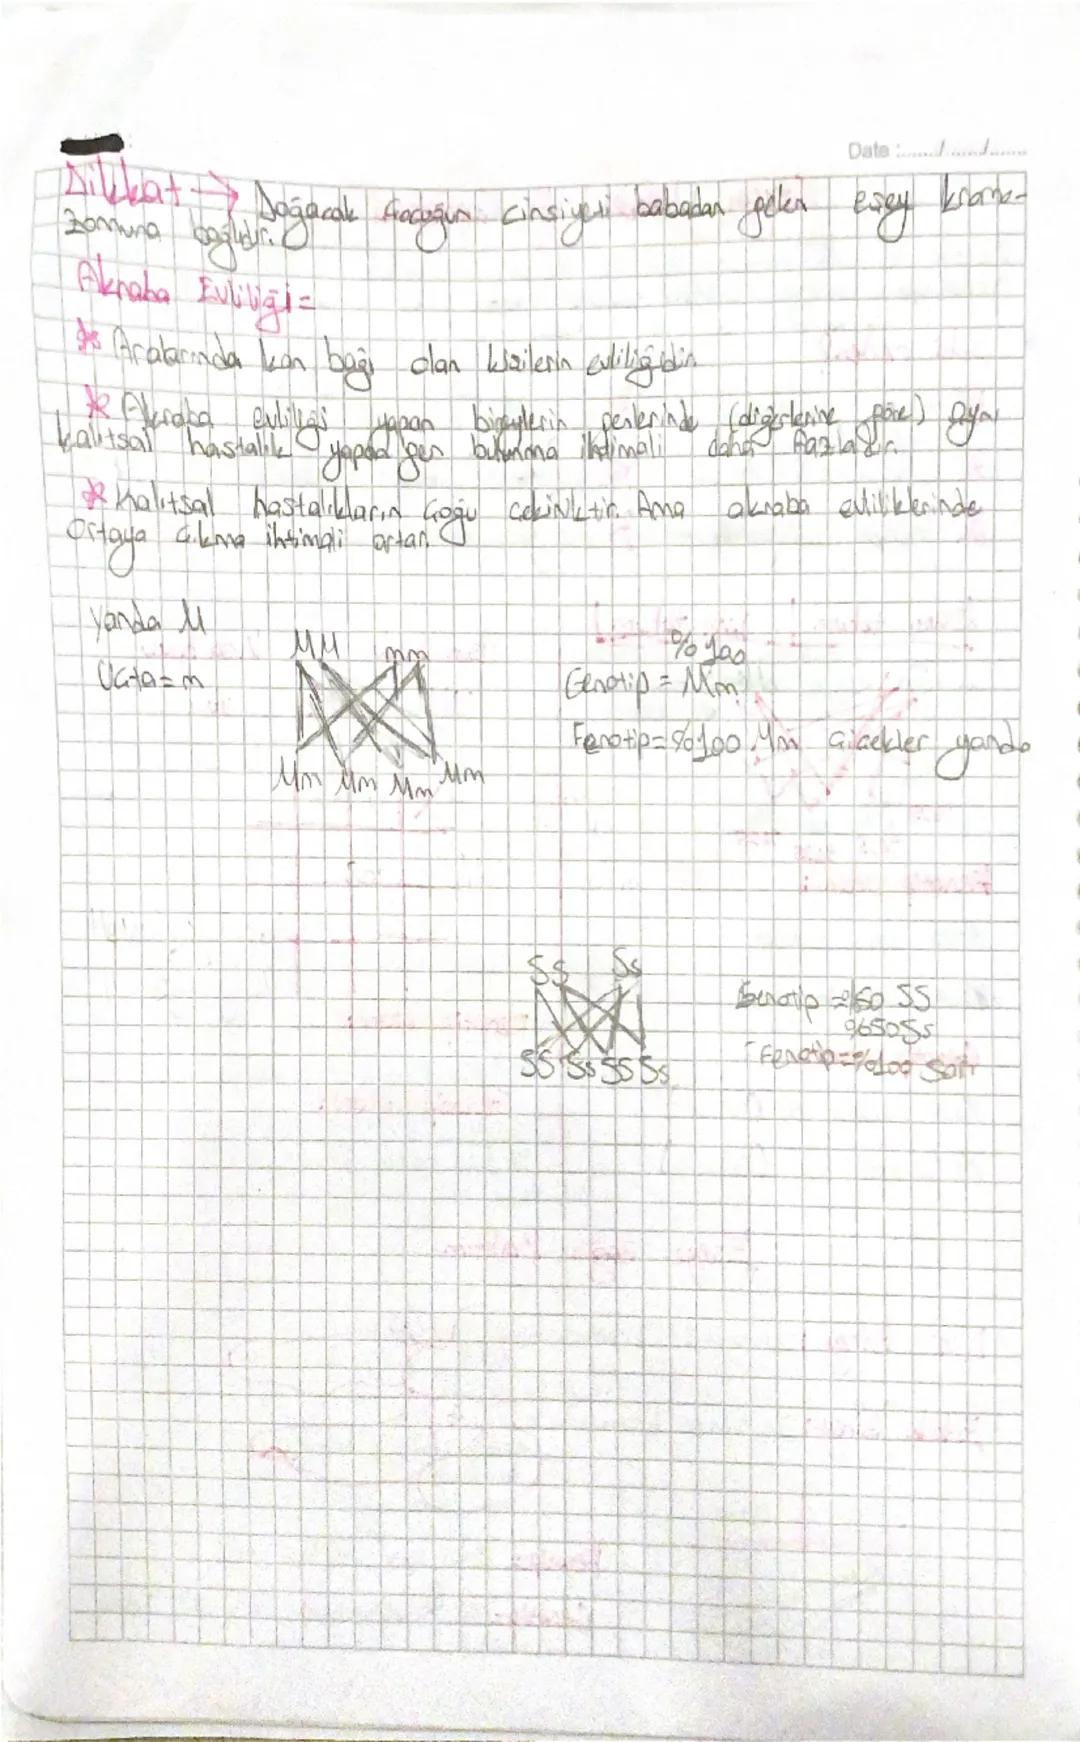 Date :....../......./.......
Dikkat → Doğacak çocuğun cinsiyeti babadan gelen eşey kromo-
zomuna bağlıdır.
Akraba Evliliği =
* Aralarında kan bağı olan kişilerin evliliğidir.
* Akraba evliliği yapan bireylerin genlerinde (diğerlerine göre) aynı
kalıtsal hastalık yapan gen bulunma ihtimali daha fazladır.
* Kalıtsal hastalıkların çoğu çekiniktir. Ama akraba evliliklerinde
ortaya çıkma ihtimali artar.
Yanda M
Uçta = m
MM mm
Mm Mm Mm Mm
%100
Genotip = Mm
Fenotip = %100 Mm çiçekler yanda
SS Ss
SS Ss SS Ss
Genotip = %50 SS
%50 Ss
Fenotip = %100 Sarı